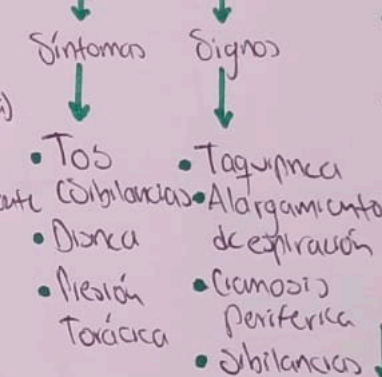 Síntomas
Signos
• Tos
(Sibilancias
• Disnea
• Presión
Torácica
• Taquipnea
• Alargamiento
de espiración
• Cianosis
periferica
• Sibilancias